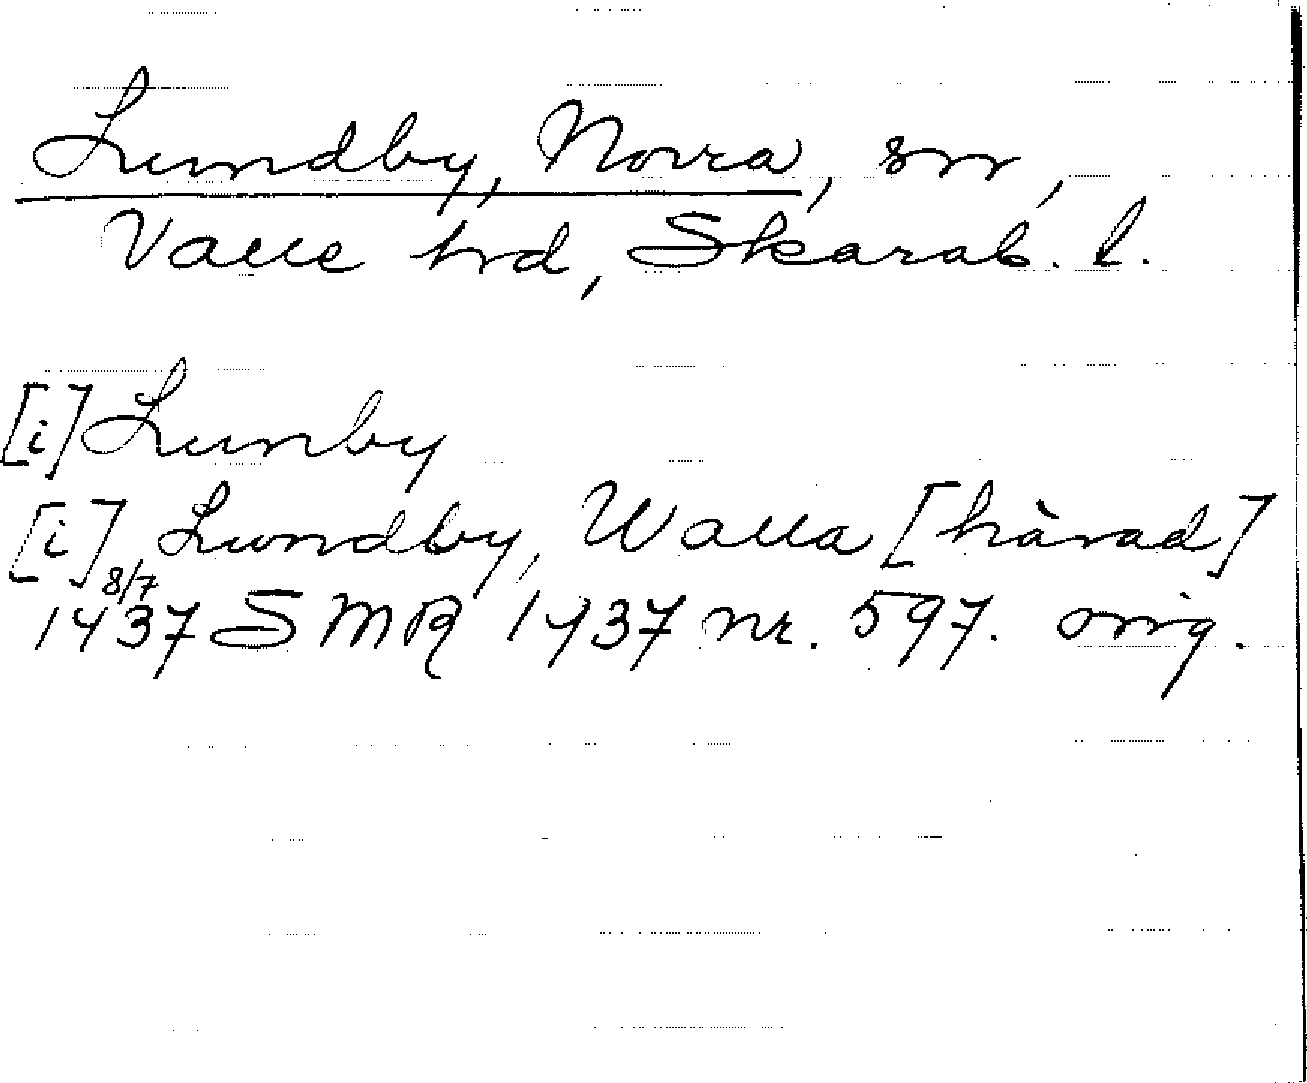 Lundby, Norra, sn,
Valle hd, Skarab. l.
[i] Lunby
[i] Lundby, Walla [härad]
8/7
1437 SMR 1437 nr. 597. orig.